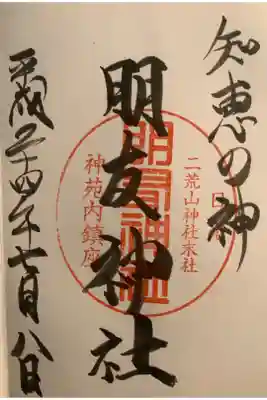 知恵の神
二荒山神社末社
朋友神社
神苑内鎮座
平成二十四年七月八日